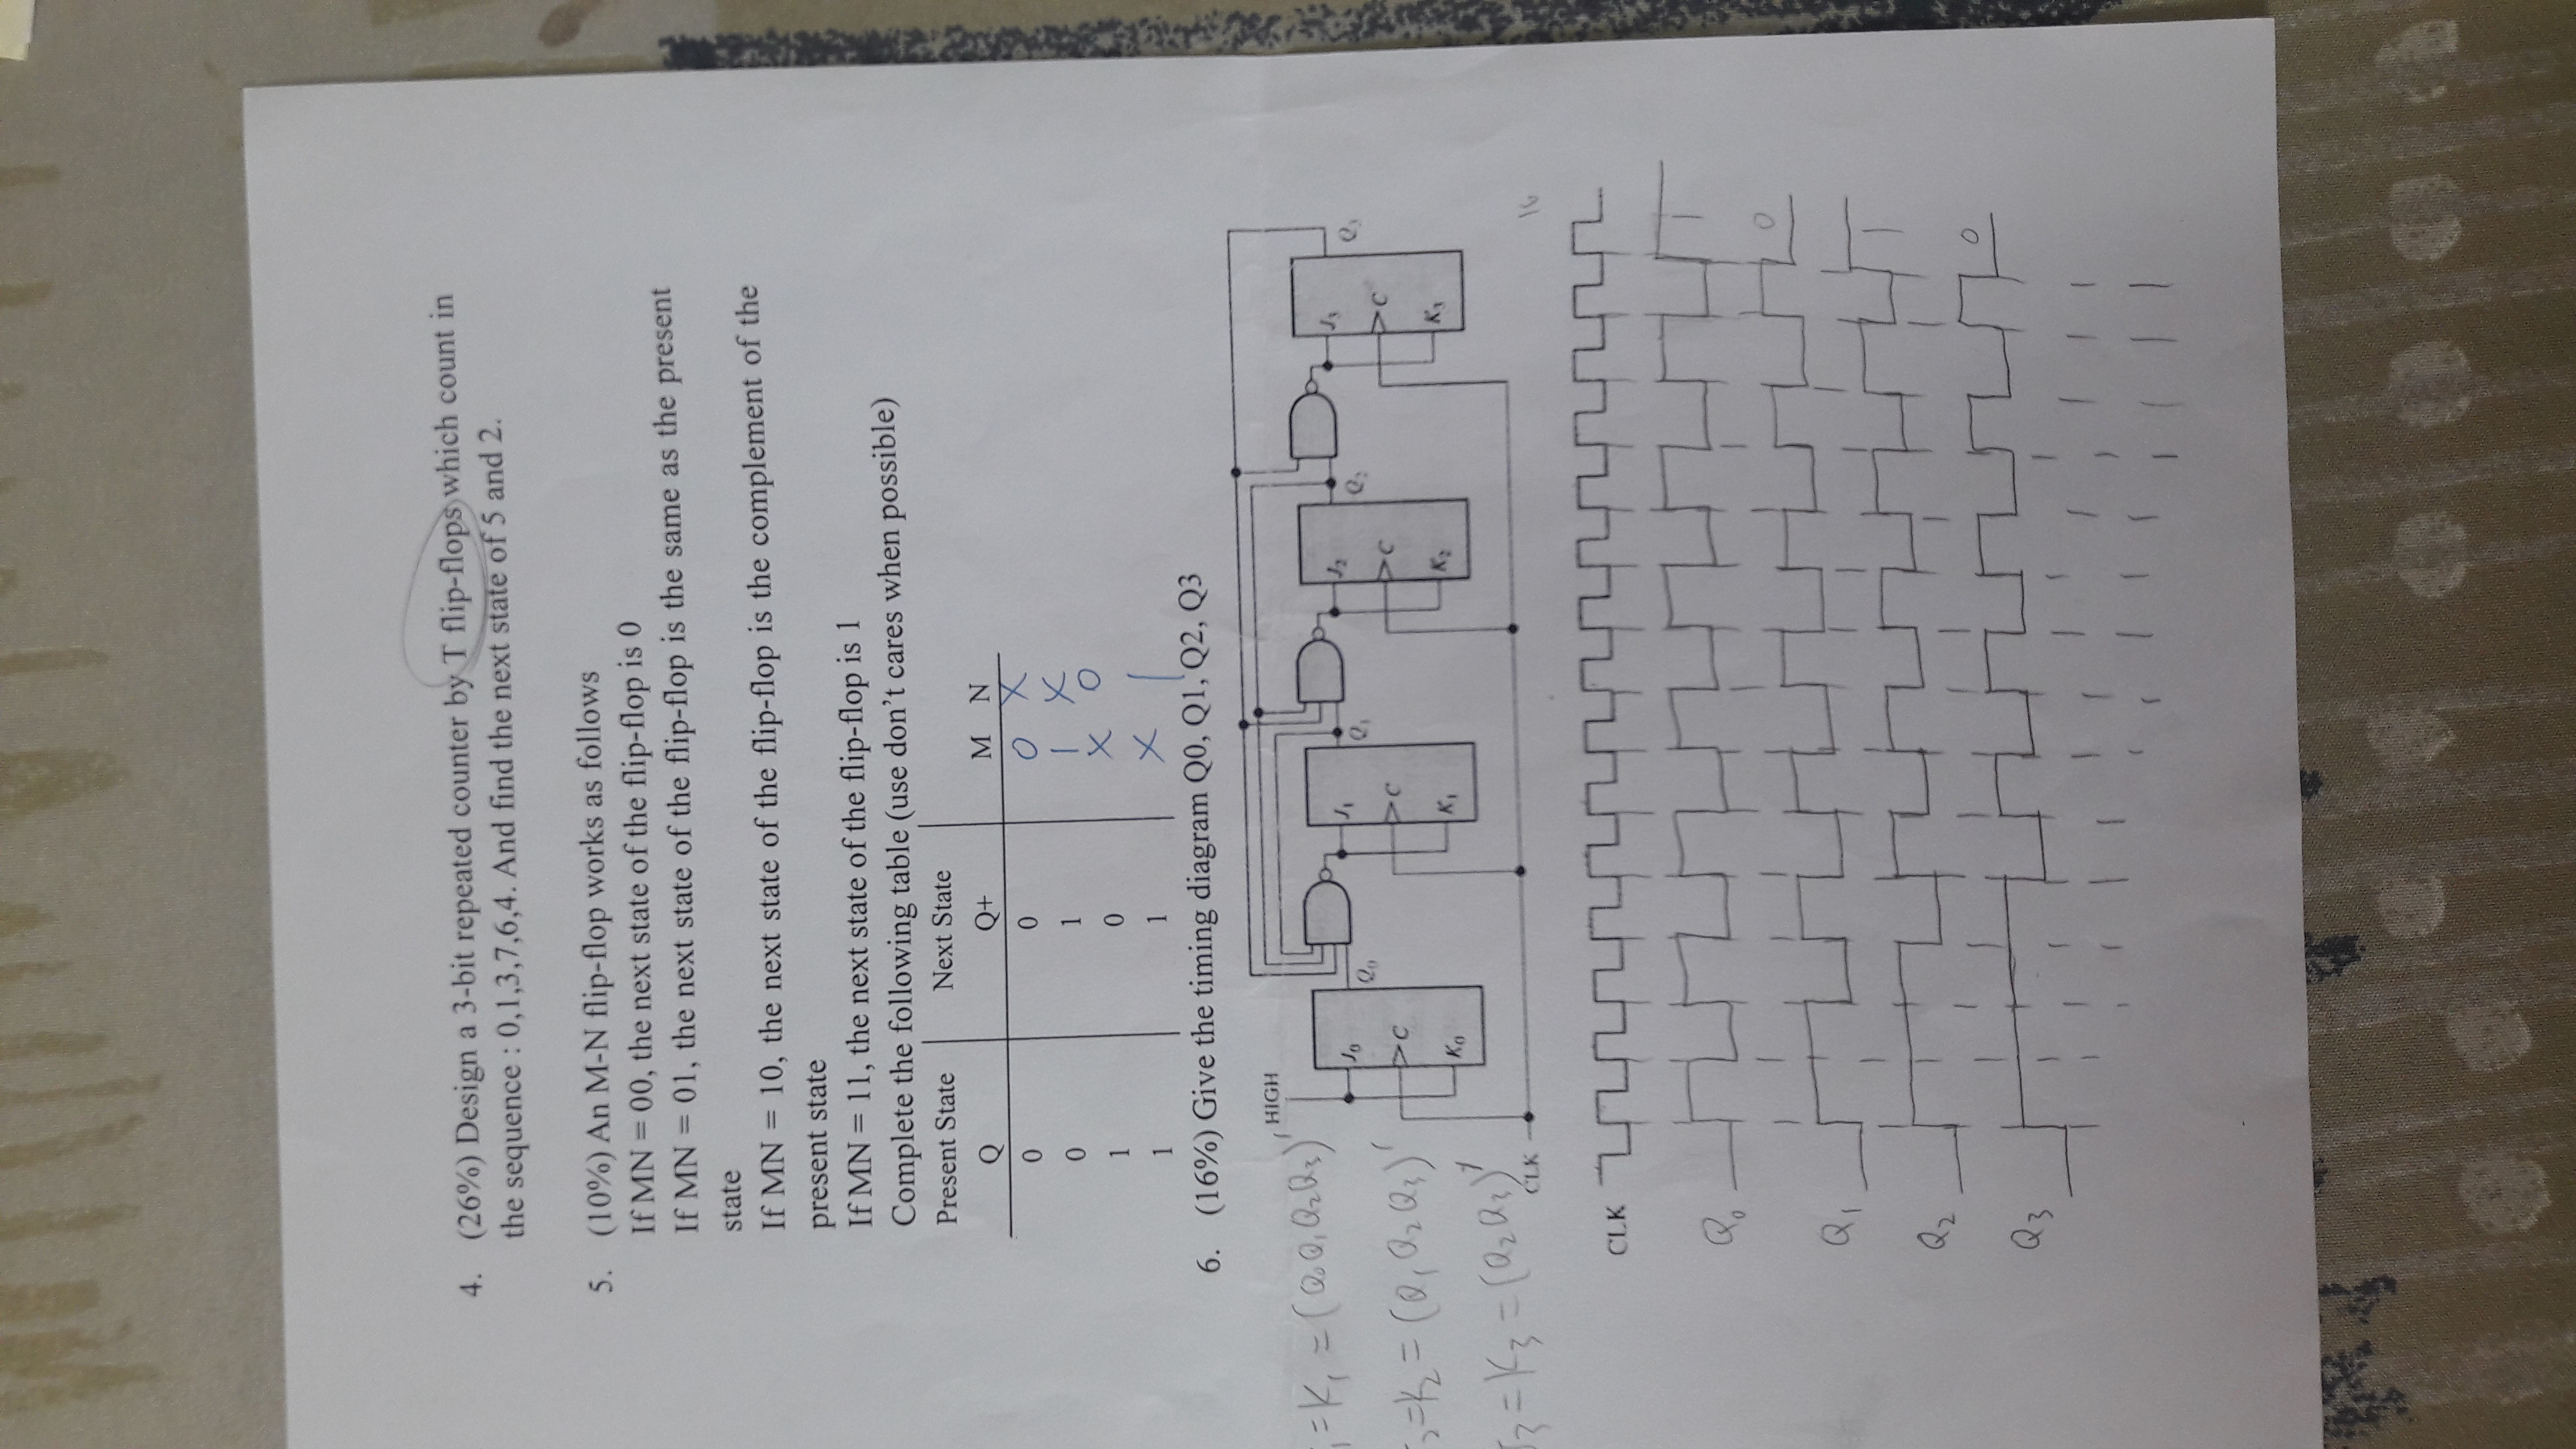 4. (26%) Design a 3-bit repeated counter by T flip-flops which count in
the sequence : 0,1,3,7,6,4. And find the next state of 5 and 2.
5. (10%) An M-N flip-flop works as follows
If MN = 00, the next state of the flip-flop is 0
If MN = 01, the next state of the flip-flop is the same as the present
state
If MN = 10, the next state of the flip-flop is the complement of the
present state
If MN = 11, the next state of the flip-flop is 1
Complete the following table (use don't cares when possible)
Present State Next State
Q Q+ M N
0 0 0 X
0 1 1 X
1 0 X 0
1 1 X 1
6. (16%) Give the timing diagram Q0, Q1, Q2, Q3
HIGH
=K₁ = (Q₀Q₁Q₂Q₃)'
J₀ Q₀ J₁ Q₁ J₂ Q₂ J₃ Q₃
C C C C
=K₂ = (Q₁Q₂Q₃)'
K₀ K₁ K₂ K₃
J₃=K₃=(Q₂Q₃)'
CLK
16
CLK
Q₀ 1
Q₁ 0
Q₂ 1
Q₃ 0